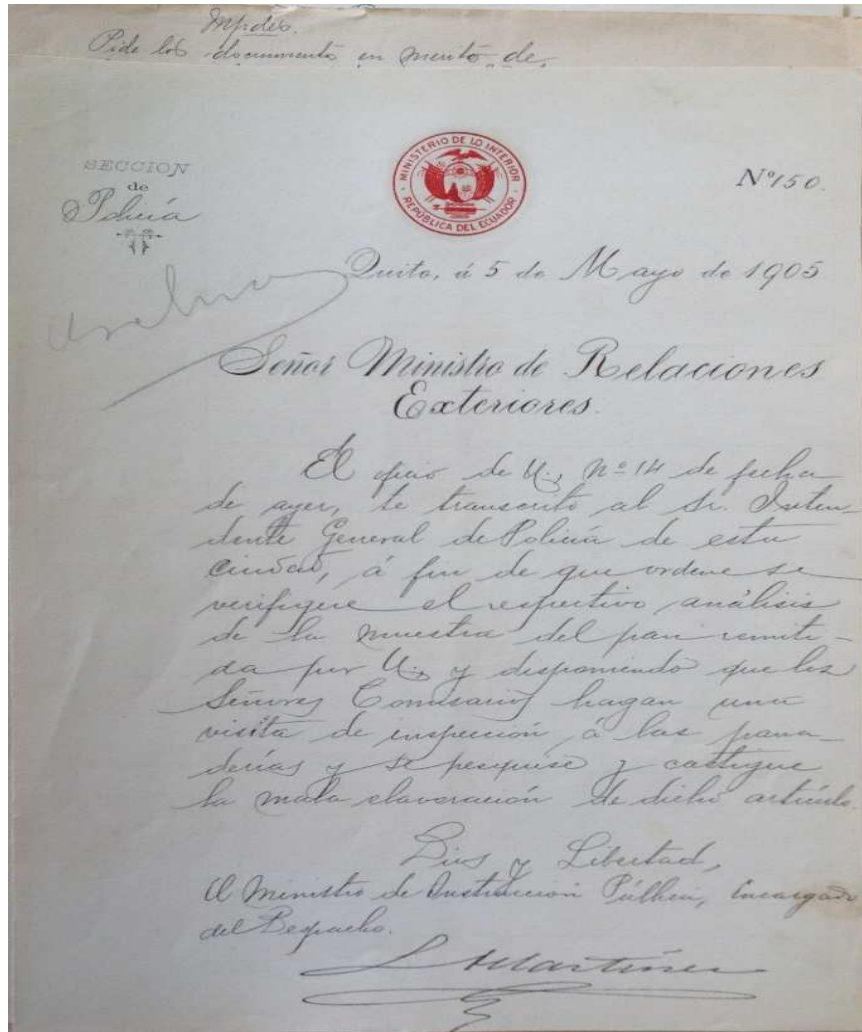 Pide los documento en mento de
SECCION
de
Policía
MINISTERIO DE LO INTERIOR
REPÚBLICA DEL ECUADOR
Nº 150.
Quito, á 5 de Mayo de 1905
Señor Ministro de Relaciones
Exteriores.
El oficio de U., Nº 14 de fecha
de ayer, te transcrito al Sr. Inten-
dente General de Policía de esta
ciudad, á fin de que ordene se
verifique el respectivo análisis
de la muestra del pan remiti-
da por U., y disponiendo que los
Señores Comisarios hagan una
visita de inspección á las pana-
derías y se pesquise y castigue
la mala elavoración de dicho artículo.
Dios y Libertad,
El Ministro de Instrucción Pública, Encargado
del Despacho.
L A Martínez